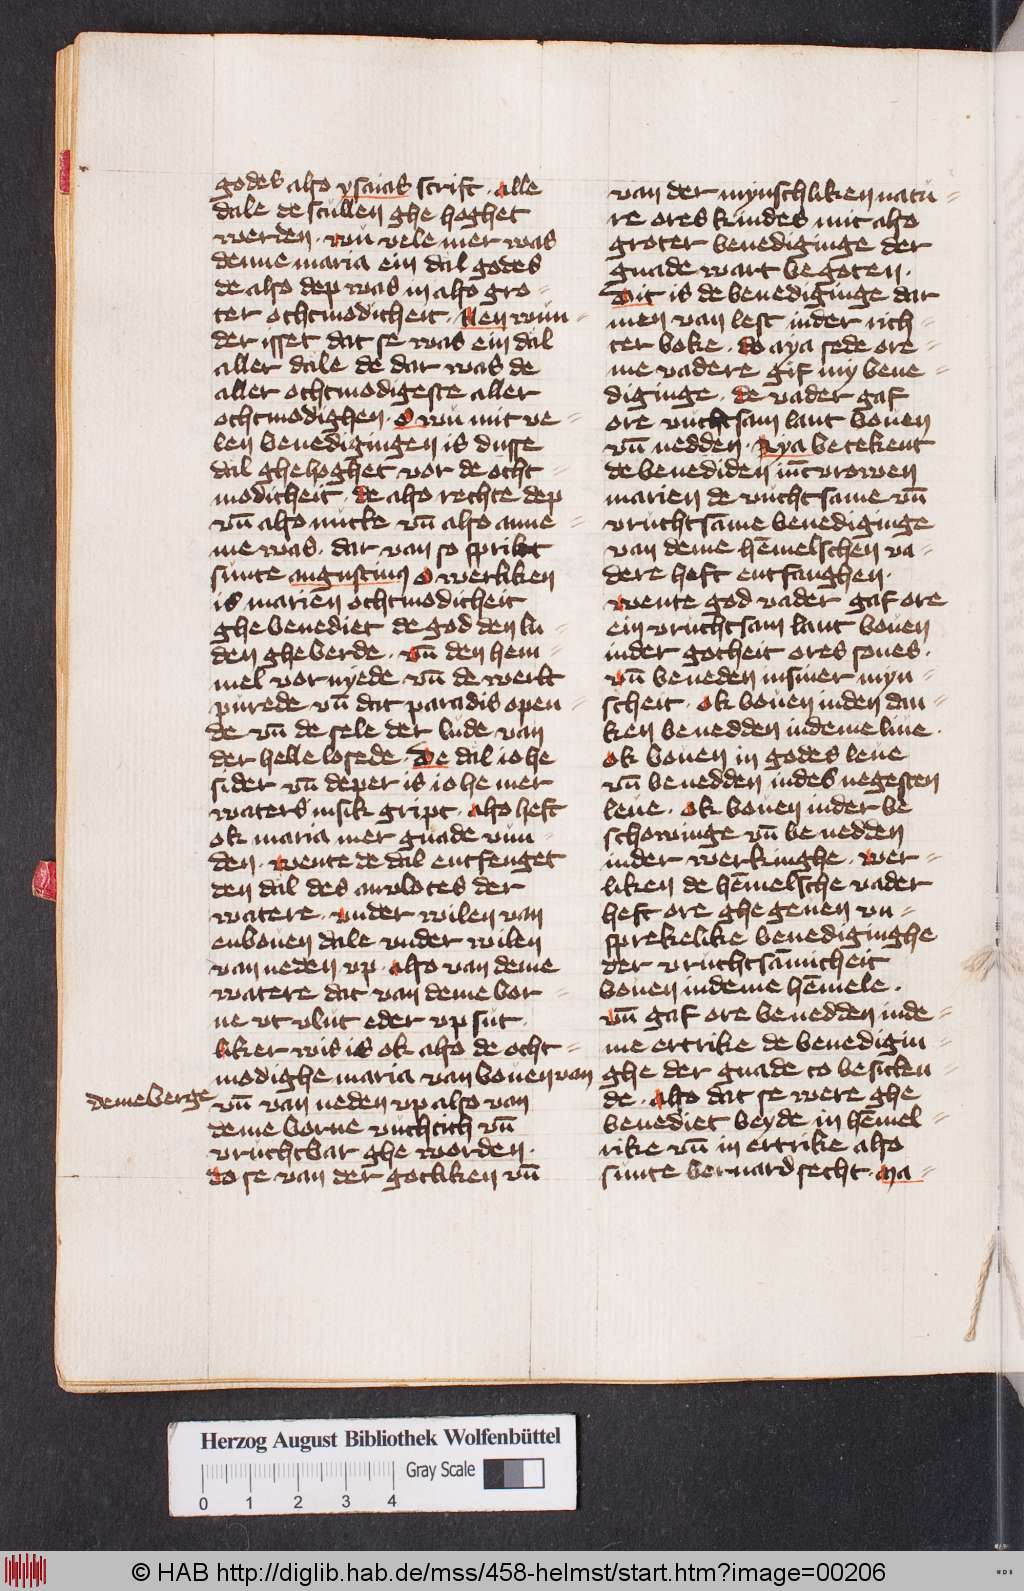 godes also ysaias scrift · alle
dale de scullen ghe hoghet
werden · wu vele mer was
denne maria ein dal godes
de also dep was in also gro=
ter othmodicheit · Nen wun=
der isset dat se was ein dal
aller dale de dar was de
aller othmodigeste aller
othmodighen · O wu mit ve=
len benedigingen is dusse
dal ghehoghet vor de otht=
modicheit · de also rechte dep
vn̄ also nutte vn̄ also anne=
me was · dar van so sprikt
sunte augustinus o werliken
is marien othmodicheit
ghe benediet de god den lu=
den gheberde · vn̄ den hem=
mel vornyede vn̄ de werlt
purede vn̄ dat paradis open=
de vn̄ de sele der lude van
der helle losede · De dal io he
sider vn̄ deper is io he mer
waters in sik gript · also heft
ok maria mer gnade vun=
den · wente de dal entfenget
den dal des anvlotes der
watere · vnder wilen van
enbouen dale vnder wilen
van neden vp · also van deme
watere dat van deme bor=
ne vt vlut eder vp sut ·
liker wis is ok also de otht=
modighe maria van bouen van
deme berge
vn̄ van neden vp also van
deme borne vuchtich vn̄
vruchtbar ghe worden ·
do se van der gotliken vn̄
van der mynschliken natu=
re ores kindes mit also
groter benediginge der
gnade wart begoten ·
Dit is de benediginge dar
men van lest in der rich=
ter boke · do axa sede ore=
me vadere gif my bene=
diginge · de vader gaf
ore vuchtsam lant bouen
vn̄ nedden · Axa betekent
de benediden iūcvrowen
marien de vuchtsame vn̄
vruchtsāme benediginge
van deme hēmelschen va=
dere heft entfanghen ·
wente god vader gaf ore
ein vruchtsam lant bouen
in der gotheit ores sones ·
vn̄ beneden in siner myn=
scheit · ok bouen in den dan=
ken benedden in deme liue ·
ok bouen in godes leue
vn̄ benedden in des negesten
leue · ok bouen in der be
schowinge vn̄ be nedden
in der werkinghe · wer=
liken de hēmelsche vader
heft ore ghe geuen vn=
sprekelike benediginghe
der vruchtsāmicheit
bouen in deme hēmele ·
vn̄ gaf ore benedden in de=
me ertrike de benedigin=
ghe der gnade to besitten=
de · also dat se were ghe
benediet beyde in hēmel=
rike vn̄ in ertrike also
sunte bernard secht · Ma=
Herzog August Bibliothek Wolfenbüttel
Gray Scale
0 1 2 3 4
© HAB http://diglib.hab.de/mss/458-helmst/start.htm?image=00206